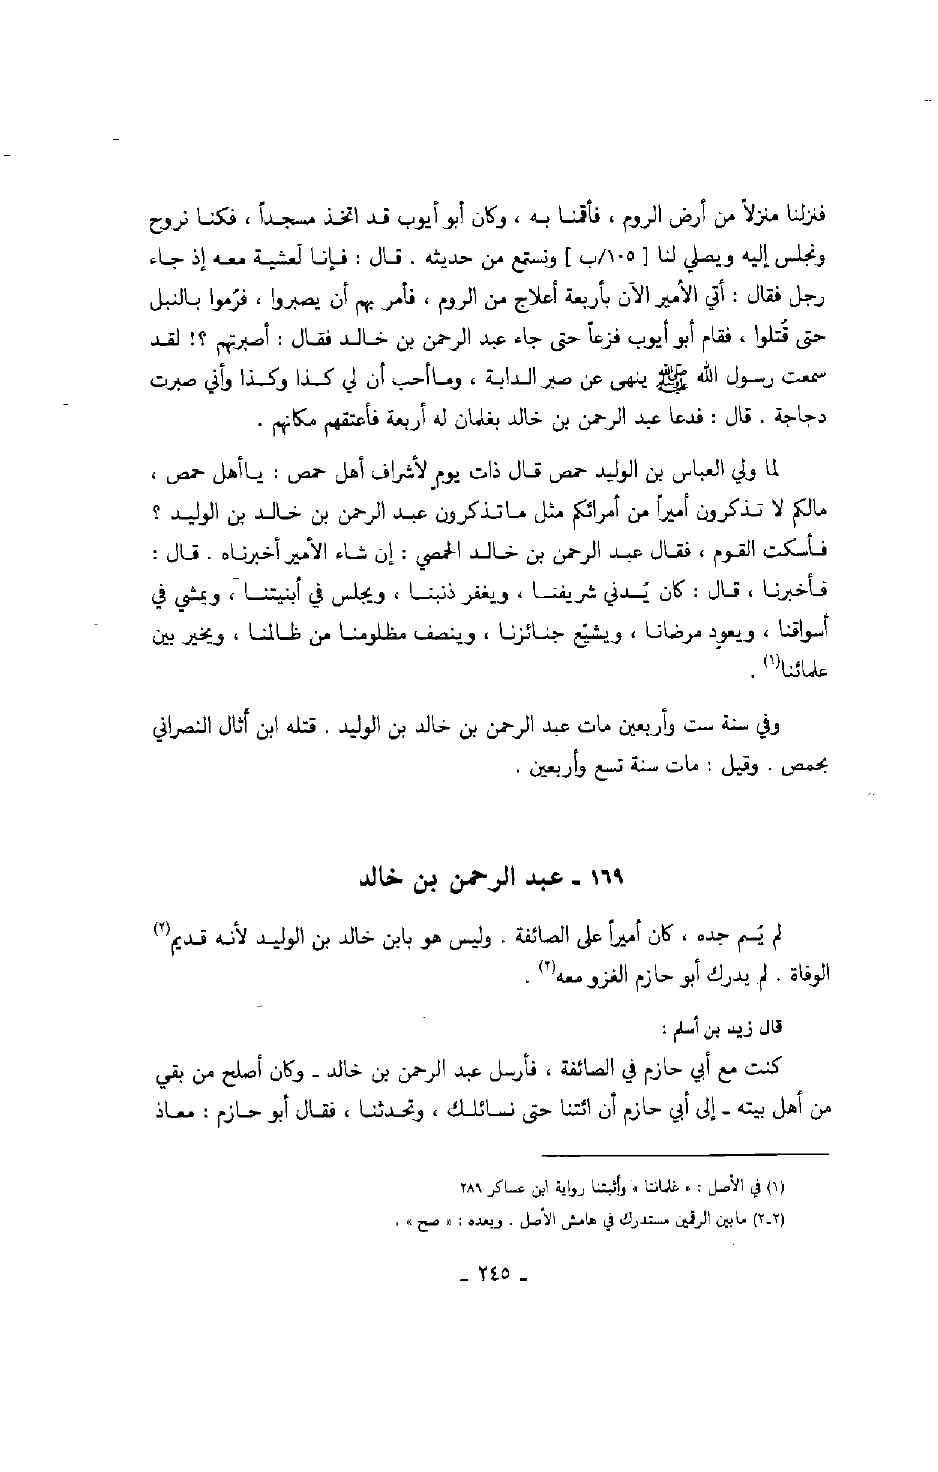 فنزلنا منزلاً من أرض الروم ، فأقمنا به ، وكان أبو أيوب قد اتخذ مسجداً ، فكنا نروح
ونجلس إليه ويصلي لنا [ ١٠٥/ب ] ونستمع من حديثه . قال : فإنا لَعشية معه إذ جاء
رجل فقال : أتي الأمير الآن بأربعة أعلاج من الروم ، فأمر بهم أن يصبروا ، فرُموا بالنبل
حتى قُتلوا ، فقام أبو أيوب فزعاً حتى جاء عبد الرحمن بن خالد فقال : أصبرتهم ؟! لقد
سمعت رسول الله ﷺ ينهى عن صبر الدابة ، وماأحب أن لي كذا وكذا وأني صبرت
دجاجة . قال : فدعا عبد الرحمن بن خالد بغلمان له أربعة فأعتقهم مكانهم .
لما ولي العباس بن الوليد حمص قال ذات يومٍ لأشراف أهل حمص : ياأهل حمص ،
مالكم لا تذكرون أميراً من أمرائكم مثل ماتذكرون عبد الرحمن بن خالد بن الوليد ؟
فأسكت القوم ، فقال عبد الرحمن بن خالد الحمصي : إن شاء الأمير أخبرناه . قال :
فأخبرنا ، قال : كان يُدني شريفنا ، ويغفر ذنبنا ، ويجلس في أبنيتنا ، ويمشي في
أسواقنا ، ويعود مرضانا ، ويشيّع جنائزنا ، وينصف مظلومنا من ظالمنا ، ويخير بين
علمائنا(١) .
وفي سنة ست وأربعين مات عبد الرحمن بن خالد بن الوليد . قتله ابن أثال النصراني
بحمص . وقيل : مات سنة تسع وأربعين .
١٦٩ ـ عبد الرحمن بن خالد
لم يُسم جده ، كان أميراً على الصائفة . وليس هو بابن خالد بن الوليد لأنه قديم(٢)
الوفاة . لم يدرك أبو حازم الغزو معه(٢) .
قال زيد بن أسلم :
كنت مع أبي حازم في الصائفة ، فأرسل عبد الرحمن بن خالد ـ وكان أصلح من بقي
من أهل بيته ـ إلى أبي حازم أن ائتنا حتى نسائلك ، وتحدثنا ، فقال أبو حازم : معاذ
(١) في الأصل : « غلماننا » وأثبتنا رواية ابن عساكر ٢٨٩
(٢ـ٢) مابين الرقمين مستدرك في هامش الأصل . وبعده : « صح » .
ـ ٢٤٥ ـ